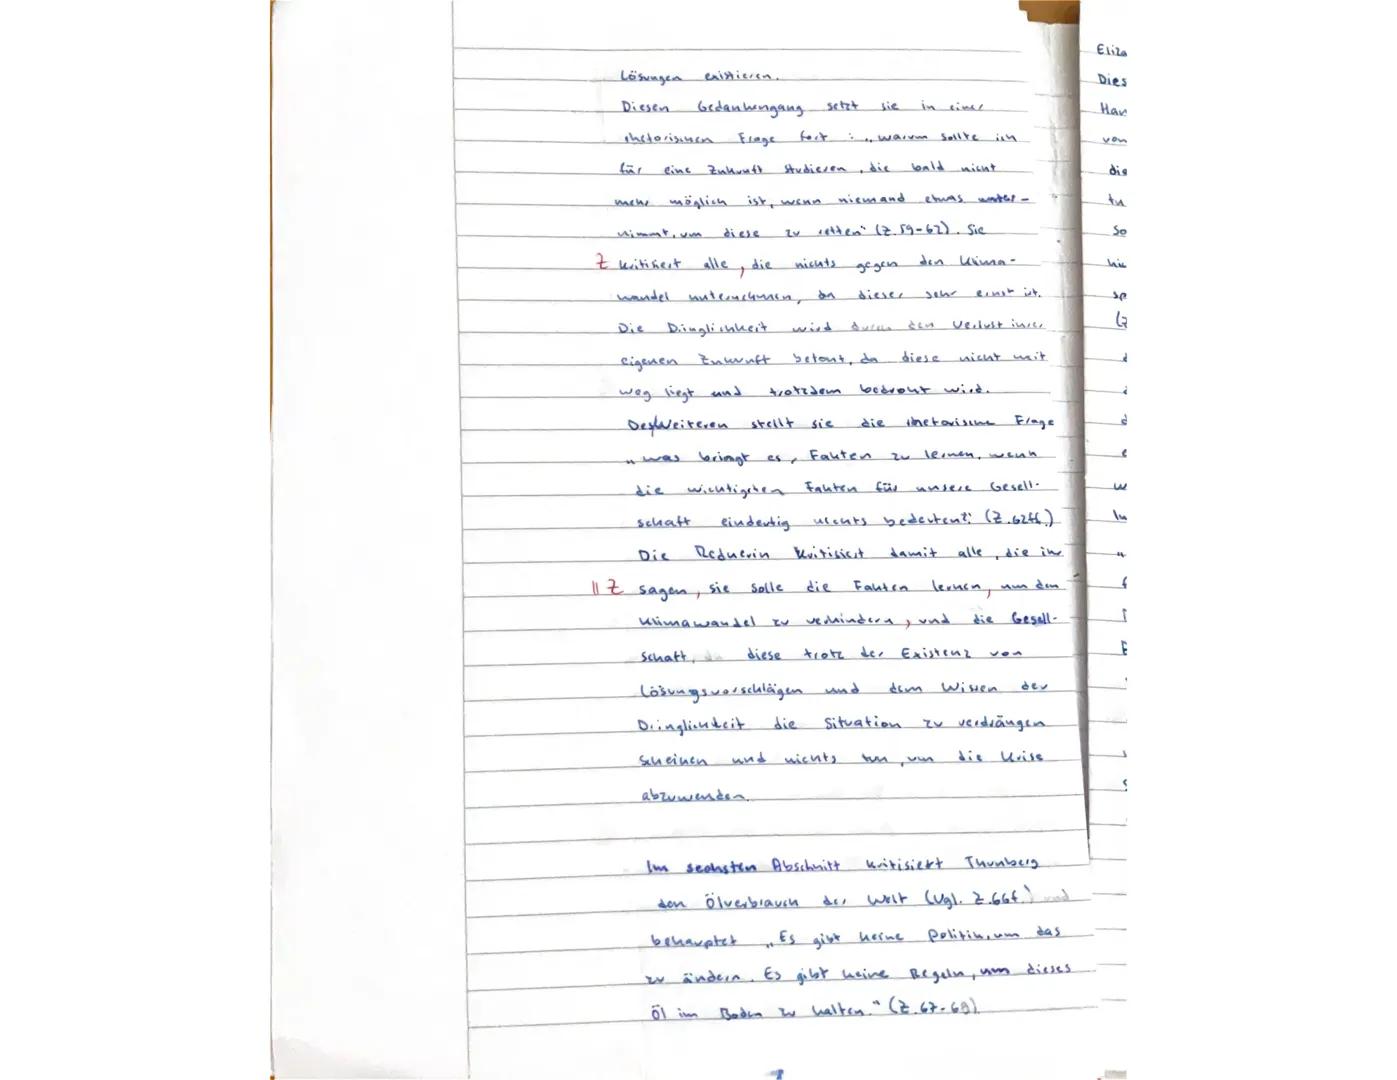 Lösungen existieren.
Diesen Gedankengang setzt sie in einer
rhetorischen Frage fort: „warum sollte ich
für eine Zukunft studieren, die bald nicht
mehr möglich ist, wenn niemand etwas unter-
nimmt, um diese zu retten" (Z.59-62). Sie
Z kritisiert alle, die nichts gegen den Klima-
wandel unternehmen, da dieser sehr ernst ist.
Die Dringlichkeit wird durch den Verlust ihrer
eigenen Zukunft betont, da diese nicht weit
weg liegt und trotzdem bedroht wird.
Des Weiteren stellt sie die rhetorische Frage
„was bringt es, Fakten zu lernen, wenn
die wichtigsten Fakten für unsere Gesell-
schaft eindeutig nichts bedeuten?" (Z.62ff.)
Die Rednerin kritisiert damit alle, die ihr
|| Z sagen, sie solle die Fakten lernen, um den
Klimawandel zu verhindern, und die Gesell-
schaft, da diese trotz der Existenz von
Lösungsvorschlägen und dem Wissen der
Dringlichkeit die Situation zu verdrängen
scheinen und nichts tun, um die Krise
abzuwenden.
Im sechsten Abschnitt kritisiert Thunberg
den Ölverbrauch der Welt (Vgl. Z.66f.) und
behauptet „Es gibt keine Politik, um das
zu ändern. Es gibt keine Regeln, um dieses
Öl im Boden zu halten." (Z.67-69)
Eliza
Dies
Har
von
die
tu
So